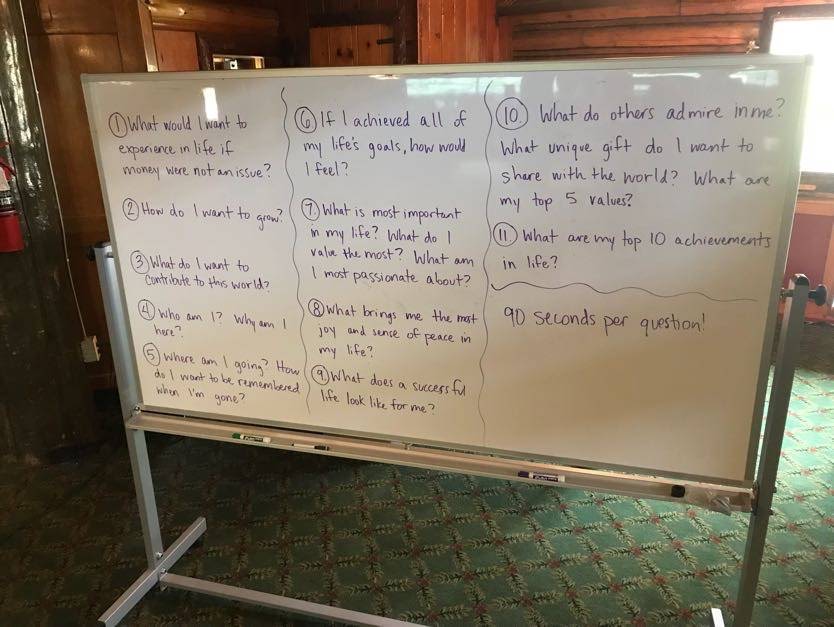 ① What would I want to
experience in life if
money were not an issue?
② How do I want to grow?
③ What do I want to
contribute to this world?
④ Who am I? Why am I
here?
⑤ Where am I going? How
do I want to be remembered
when I'm gone?
⑥ If I achieved all of
my life's goals, how would
I feel?
⑦ What is most important
in my life? What do I
value the most? What am
I most passionate about?
⑧ What brings me the most
joy and sense of peace in
my life?
⑨ What does a successful
life look like for me?
⑩ What do others admire in me?
What unique gift do I want to
share with the world? What are
my top 5 values?
⑪ What are my top 10 achievements
in life?
90 seconds per question!